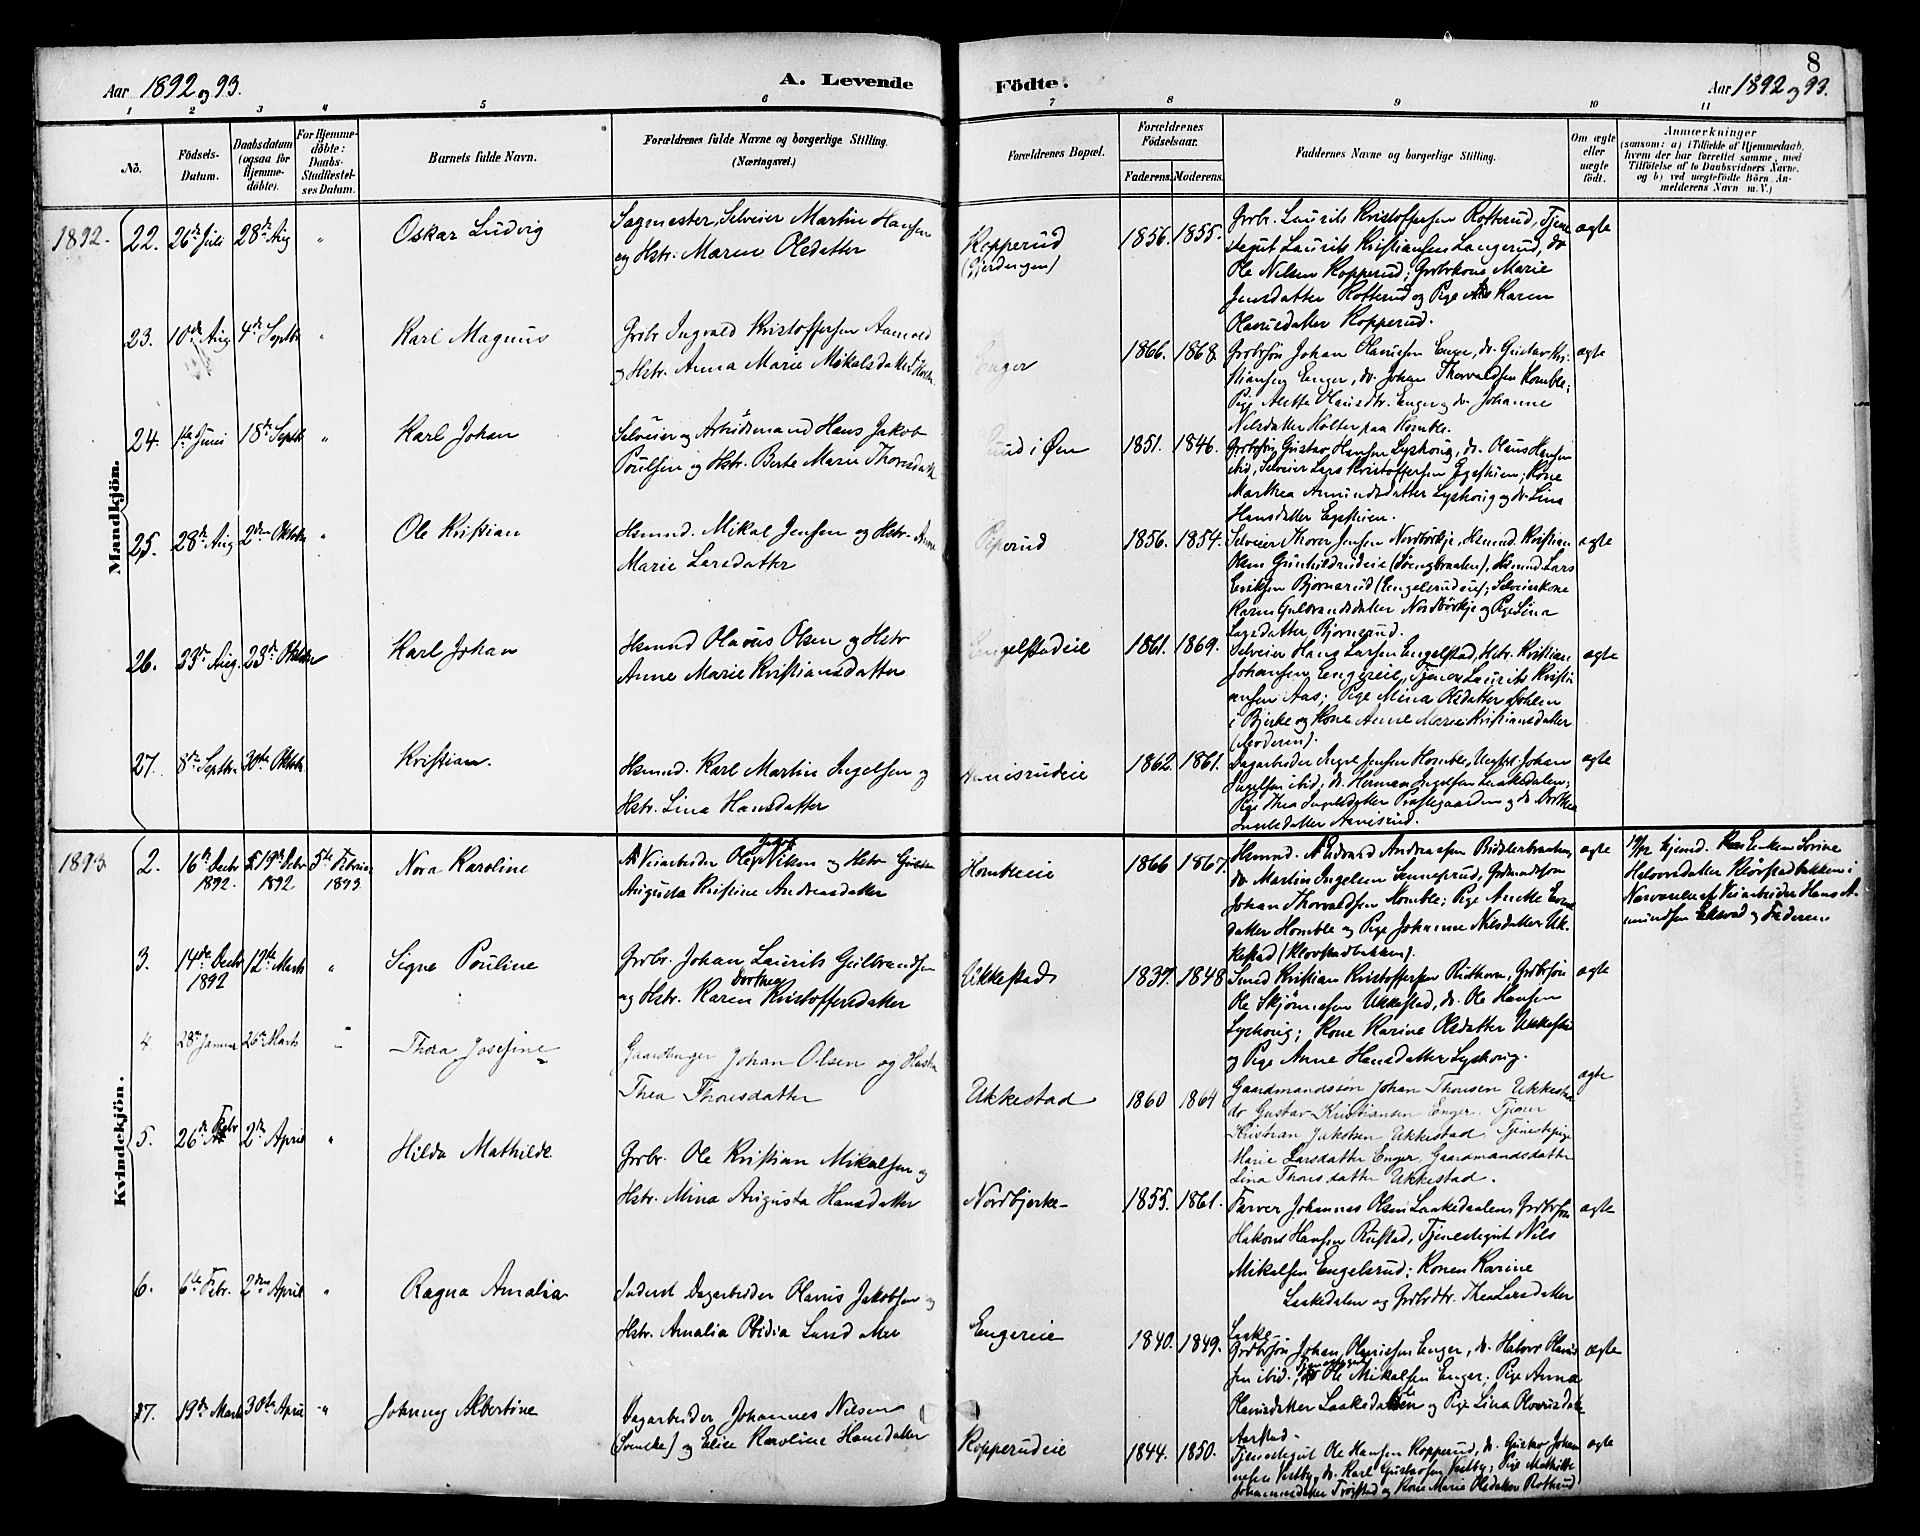 8
Aar 1892 og 93.
A. Levende
Födte.
Aar 1892 og 93.
1 2 3 4 5 6 7 8 9 10 11
No.
Födsels-
Datum.
Daabsdatum
(ogsaa for
Hjemme-
döbte).
For Hjemme-
döbte:
Daabs-
Stadfæstel-
ses Datum.
Barnets fulde Navn.
Forældrenes fulde Navne og borgerlige Stilling.
(Næringsvei.)
Forældrenes Bopæl.
Forældrenes
Födselsaar.
Faderens.
Moderens.
Faddernes Navne og borgerlige Stilling.
Om ægte
eller
uægte
födt.
Anmærkninger
(saasom: a) i Tilfælde af Hjemmedaab,
hvem der har forrettet samme, med
Tilföielse af to Daabsvidners Navne,
og b) ved uægtefödte Börn An-
melderens Navn m. V.)
Mandkjön.
1892.
22. 26de Juli 28de Aug " Oskar Ludvig
Sagmester, Selveier Martin Hansen
og Hstr. Maren Olsdatter
Kopperud
(Gjerdingen)
1856. 1855.
Grbr. Laurits Kristoffersen Rotterud, Tjene
stegut Laurits Kristiansen Langerud, do
Ole Nilsen Kopperud; Grbrkone Marie
Jensdatter Rotterud og Pige Karen
Olausdatter Kopperud.
ægte
23. 10de Aug 4de Septbr " Karl Magnus
Grbr Ingvald Kristoffersen Aamold
og Hstr. Anna Marie Mikalsdatter
Enger
1866. 1868.
Grbrsön Johan Olausen Enger, do. Gustav Kri
stiansen Enger, do. Johan Thorvaldsen Homble;
Pige Alette Olausdtr. Enger og do. Johanne
Nilsdatter Holter paa Homble.
ægte
24. 1ste Juni 18de Septbr " Karl Johan
Selveier og Arbeidsmand Hans Jakob
Poulsen og Hstr. Berte Marie Thorsdatter
Ruud i Øien
1851. 1846.
Grbrsön Gustav Hansen Lyshoug, do. Olaus Hansen
ibid, Selveier Lars Kristoffersen Egestuen; Kone
Marthea Amundsdatter Lyshoug og do Lina
Hansdatter Egestuen.
25. 28de Aug 2den Oktober " Ole Kristian
Hsmnd. Mikal Jensen og Hstr. Anne
Marie Larsdatter
Piperud
1856. 1854.
Selveier Thorer Jensen Nordbörkje, Hsmnd. Kristian
Olsen Gunhildrudeie, Hsmnd. Lars
Eriksen Bjornerud (Engelsrudeie); Selveierkone
Karen Gulbrandsdatter Nordbörkje og Pige Lina
Larsdatter Bjornerud.
ægte
26. 23de Aug. 23de Oktober Karl Johan
Hsmnd Olaus Olsen og Hstr
Anne Marie Kristiansdatter
Engelstadeie
1861. 1869.
Selveier Hans Larsen Engelstad, Hstr. Kristian
Johansen Engereie, Tjener Laurits Kristi
ansen Aas; Pige Mina Olsdatter Dohlen
i Bjerke og Kone Anne Marie Kristiansdatter
(Moderen).
ægte
27. 8de Septbr. 30te Oktobr Kristian.
Hsmnd. Karl Martin Ingelsen og
Hstr. Lina Hansdatter
Amisrudeie
1862. 1861.
Dagarbeider Ingel Jensen Homble, Ungkl Johan
Ingelsen ibid; do. Herman Ingelsen Laakedalen;
Pige Thea Ingelsdatter Præstegaarden og do Dorthea
Ingelsdatter Amisrud.
ægte
Kvindekjön.
1893
2. 16de Decbr
1892. 19de Decbr
1892 5te Februar
1893. Nora Karoline
Veiarbeider Ole Vikens og Hstr
Augusta Kristine Andreasdatter
Hombleeie
1866 1867.
Hsmnd. Andreas Andreasen
do Martin Ingelsen Sennerud, Grdmandssön
Johan Thorvaldsen Homble; Pige Anette
datter Homble og Pige Johanne Nilsdatter Uk-
kestad (Klovstadbakken).
ægte
Hjemd. Enken Sorine
Halvorsdatter Klövstadbakken i
Nærværelse af Veiarbeider Hans A-
mundsen og Faderen.
3. 14de Decbr
1892 12te Marts " Signe Pouline
Grbr. Johan Laurits Gulbrandsen
og Hstr. Karen Dorthea Kristoffersdatter
Ukkestad
1837. 1848
Smed Kristian Kristoffersen Ruthorn, Grbrsön
Ole Skjönnesen Ukkestad, do. Ole Hansen
Lyshoug; Kone Karine Olsdatter Ukkestad
og Pige Anne Hansdatter Lyshoug.
ægte
4 28de Januar 26de Marts " Thora Josefine
Gaardbruger Johan Olsen og Hustru
Thea Thoresdatter
Ukkestad
1860 1864
Gaardmandssön Johan Thoresen Ukkestad
do Gustav Kristiansen Enger. Tjener
Kristian Jakobsen Ukkestad. Tjenestepige
Marie Larsdatter Enger, Gaardmandsdatter
Lina Thoresdatter Ukkestad.
ægte
5. 26de Febr 2den April " Hilda Mathilde
Grbr. Ole Kristian Mikalsen og
Hstr. Mina Augusta Hansdatter
Nordbjerke
1855. 1861.
Farver Johannes Olsen Laakedalen, Grdbrsön
Hakon Hansen Rustad, Tjenestegut Nils
Mikalsen Engelsrud; Konen Karine
Laakedalen og Grbrdtr. Thea Larsdatter
Laake
ægte
6. 6te Febr. 2den April " Ragna Amalia
Inderst Dagarbeider Olaus Jakobsen og
Hstr. Amalia Obidia
Engereie
1840. 1849.
Grdbrsön Johan Olausen Enger, do. Halvor Olaus
sen ibid., Tjenestegut Ole Mikalsen Enger; Pige Anna
Olausdatter Laakedalen og Pige Lina Olausdatter
Aarstad.
ægte
7. 19de Marts 30te April " Johnny Albertine
Dagarbeider Johannes Nilsen
(Svenske) og Elise Karoline Hansdatter
Kopperudeie
1844. 1850.
Tjenestegut Ole Hansen Kopperud, do. Gustav Johan
nesen Vestby, do. Karl Gustavsen Vestby; Pige Mathilde
Johannesdatter Trögstad og Kone Marie Olsdatter Rotterud
ægte